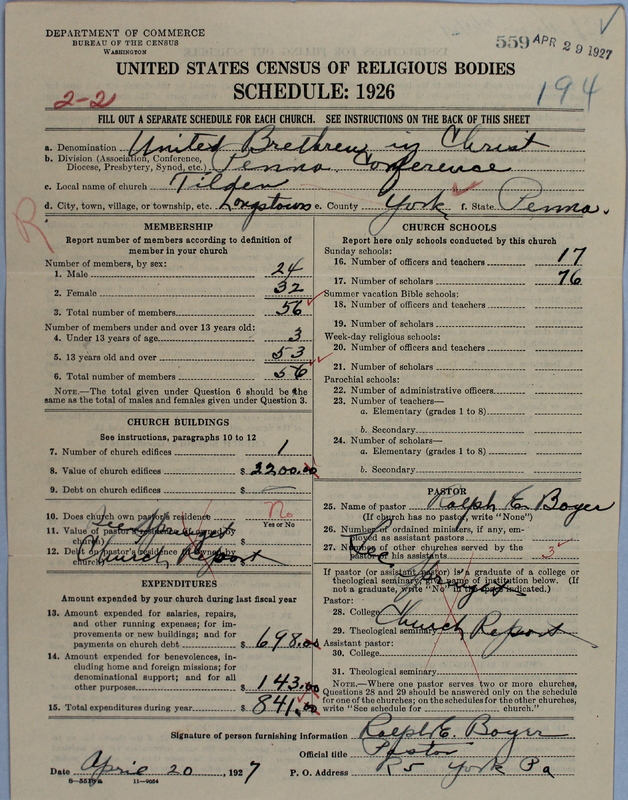 DEPARTMENT OF COMMERCE
BUREAU OF THE CENSUS
WASHINGTON
559 APR 29 1927
UNITED STATES CENSUS OF RELIGIOUS BODIES
SCHEDULE: 1926
2-2
194
FILL OUT A SEPARATE SCHEDULE FOR EACH CHURCH. SEE INSTRUCTIONS ON THE BACK OF THIS SHEET
a. Denomination United Brethren in Christ
b. Division (Association, Conference, Diocese, Presbytery, Synod, etc.) Penna. Conference
c. Local name of church Tilden
d. City, town, village, or township, etc. Longstown e. County York f. State Penna.
R
MEMBERSHIP
Report number of members according to definition of
member in your church
Number of members, by sex:
1. Male 24
2. Female 32
3. Total number of members 56
Number of members under and over 13 years old:
4. Under 13 years of age 3
5. 13 years old and over 53
6. Total number of members 56
NOTE.—The total given under Question 6 should be the
same as the total of males and females given under Question 3.
CHURCH BUILDINGS
See instructions, paragraphs 10 to 12
7. Number of church edifices 1
8. Value of church edifices $ 2200.00
9. Debt on church edifices $
10. Does church own pastor's residence No
Yes or No
11. Value of pastor's residence (if owned by church)
12. Debt on pastor's residence (if owned by church)
See Springet
Church Report
EXPENDITURES
Amount expended by your church during last fiscal year
13. Amount expended for salaries, repairs,
and other running expenses; for im-
provements or new buildings; and for
payments on church debt $ 698.00
14. Amount expended for benevolences, in-
cluding home and foreign missions; for
denominational support; and for all
other purposes $ 143.00
15. Total expenditures during year $ 841.00
CHURCH SCHOOLS
Report here only schools conducted by this church
Sunday schools:
16. Number of officers and teachers 17
17. Number of scholars 76
Summer vacation Bible schools:
18. Number of officers and teachers
19. Number of scholars
Week-day religious schools:
20. Number of officers and teachers
21. Number of scholars
Parochial schools:
22. Number of administrative officers
23. Number of teachers—
a. Elementary (grades 1 to 8)
b. Secondary
24. Number of scholars—
a. Elementary (grades 1 to 8)
b. Secondary
PASTOR
25. Name of pastor Ralph E. Boyer
(If church has no pastor, write "None")
26. Number of ordained ministers, if any, em-
ployed as assistant pastors
27. Number of other churches served by the
pastor or his assistants 3
If pastor (or assistant pastor) is a graduate of a college or
theological seminary, give name of institution below. (If
not a graduate, write "No" in the space indicated.)
Pastor:
28. College
29. Theological seminary
Assistant pastor:
30. College
31. Theological seminary
See Springet
Church Report
NOTE.—Where one pastor serves two or more churches,
Questions 28 and 29 should be answered only on the schedule
for one of the churches; on the schedules for the other churches,
write "See schedule for church."
Signature of person furnishing information Ralph E. Boyer
Official title Pastor
Date April 20, 1927 P. O. Address R5 York Pa
8-5518a 11-9054